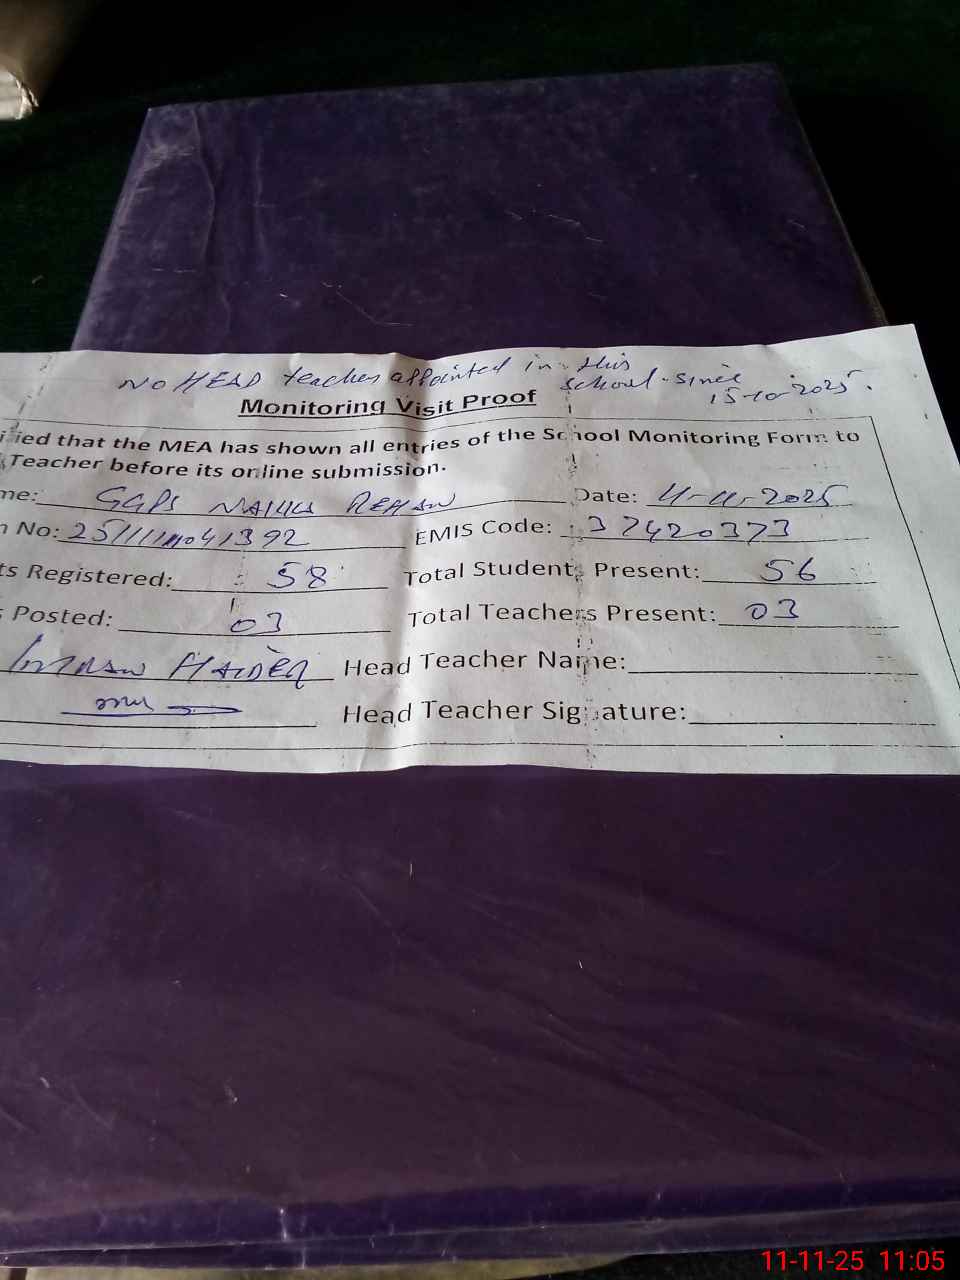 No HEAD teacher appointed in this
school since
15-10-2025.
Monitoring Visit Proof
ified that the MEA has shown all entries of the School Monitoring Form to
Teacher before its online submission.
me: GGPS Date: 11-11-2025
No: EMIS Code: 37420373
ts Registered: 58 Total Students Present: 56
s Posted: 03 Total Teachers Present: 03
HAIDER Head Teacher Name:
Head Teacher Signature:
11-11-25 11:05